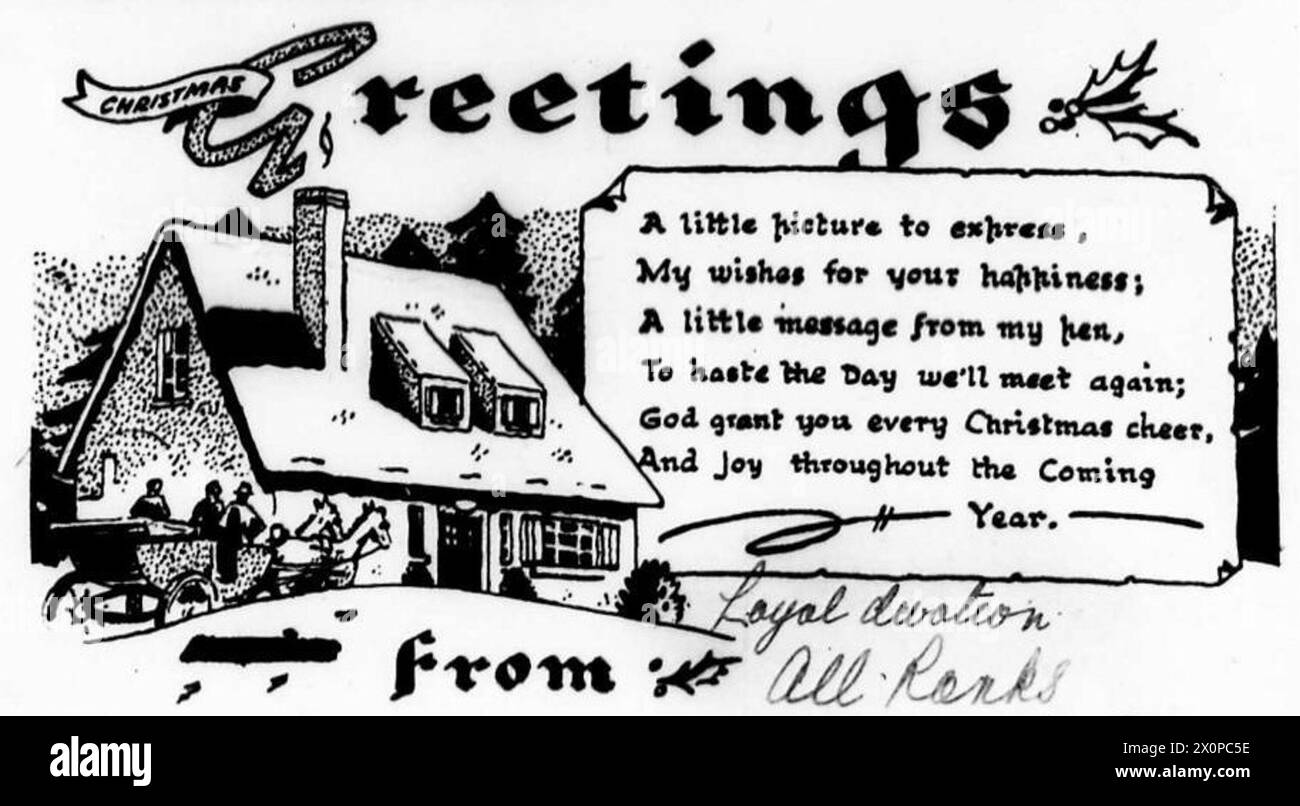 CHRISTMAS
Greetings
A little picture to express,
My wishes for your happiness;
A little message from my pen,
To haste the Day we'll meet again;
God grant you every Christmas cheer,
And Joy throughout the Coming
Year.
Loyal devotion
From All Ranks
alamy
Image ID: X0PC5E
www.alamy.com